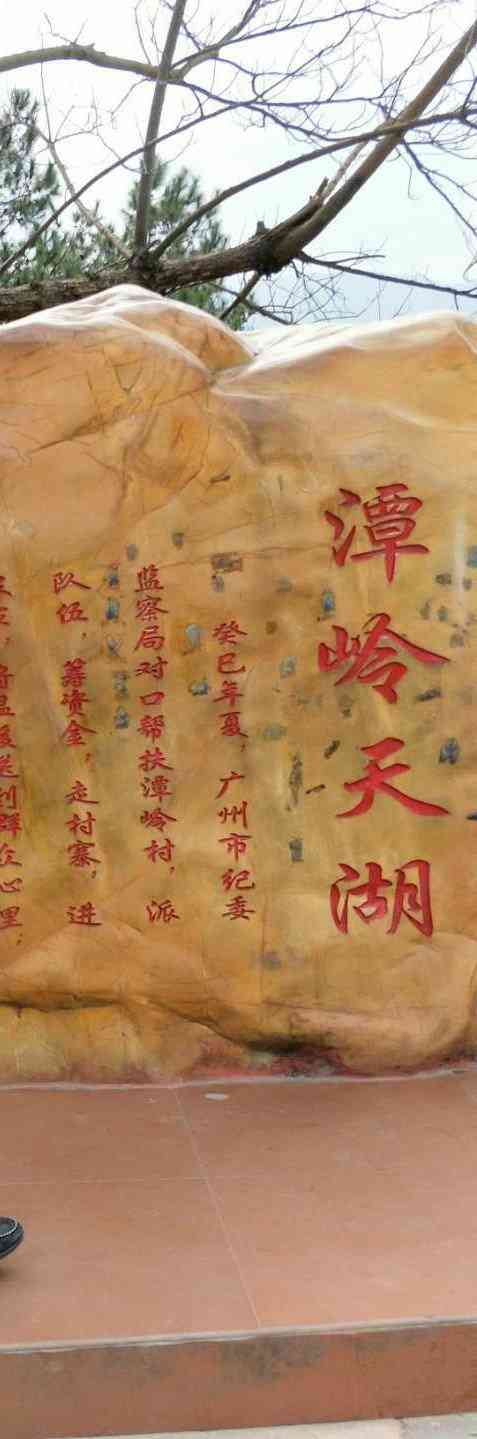 潭岭天湖
癸巳年夏，广州市纪委
监察局对口帮扶潭岭村，派
队伍，筹资金，走村寨，进
送到群众心里；